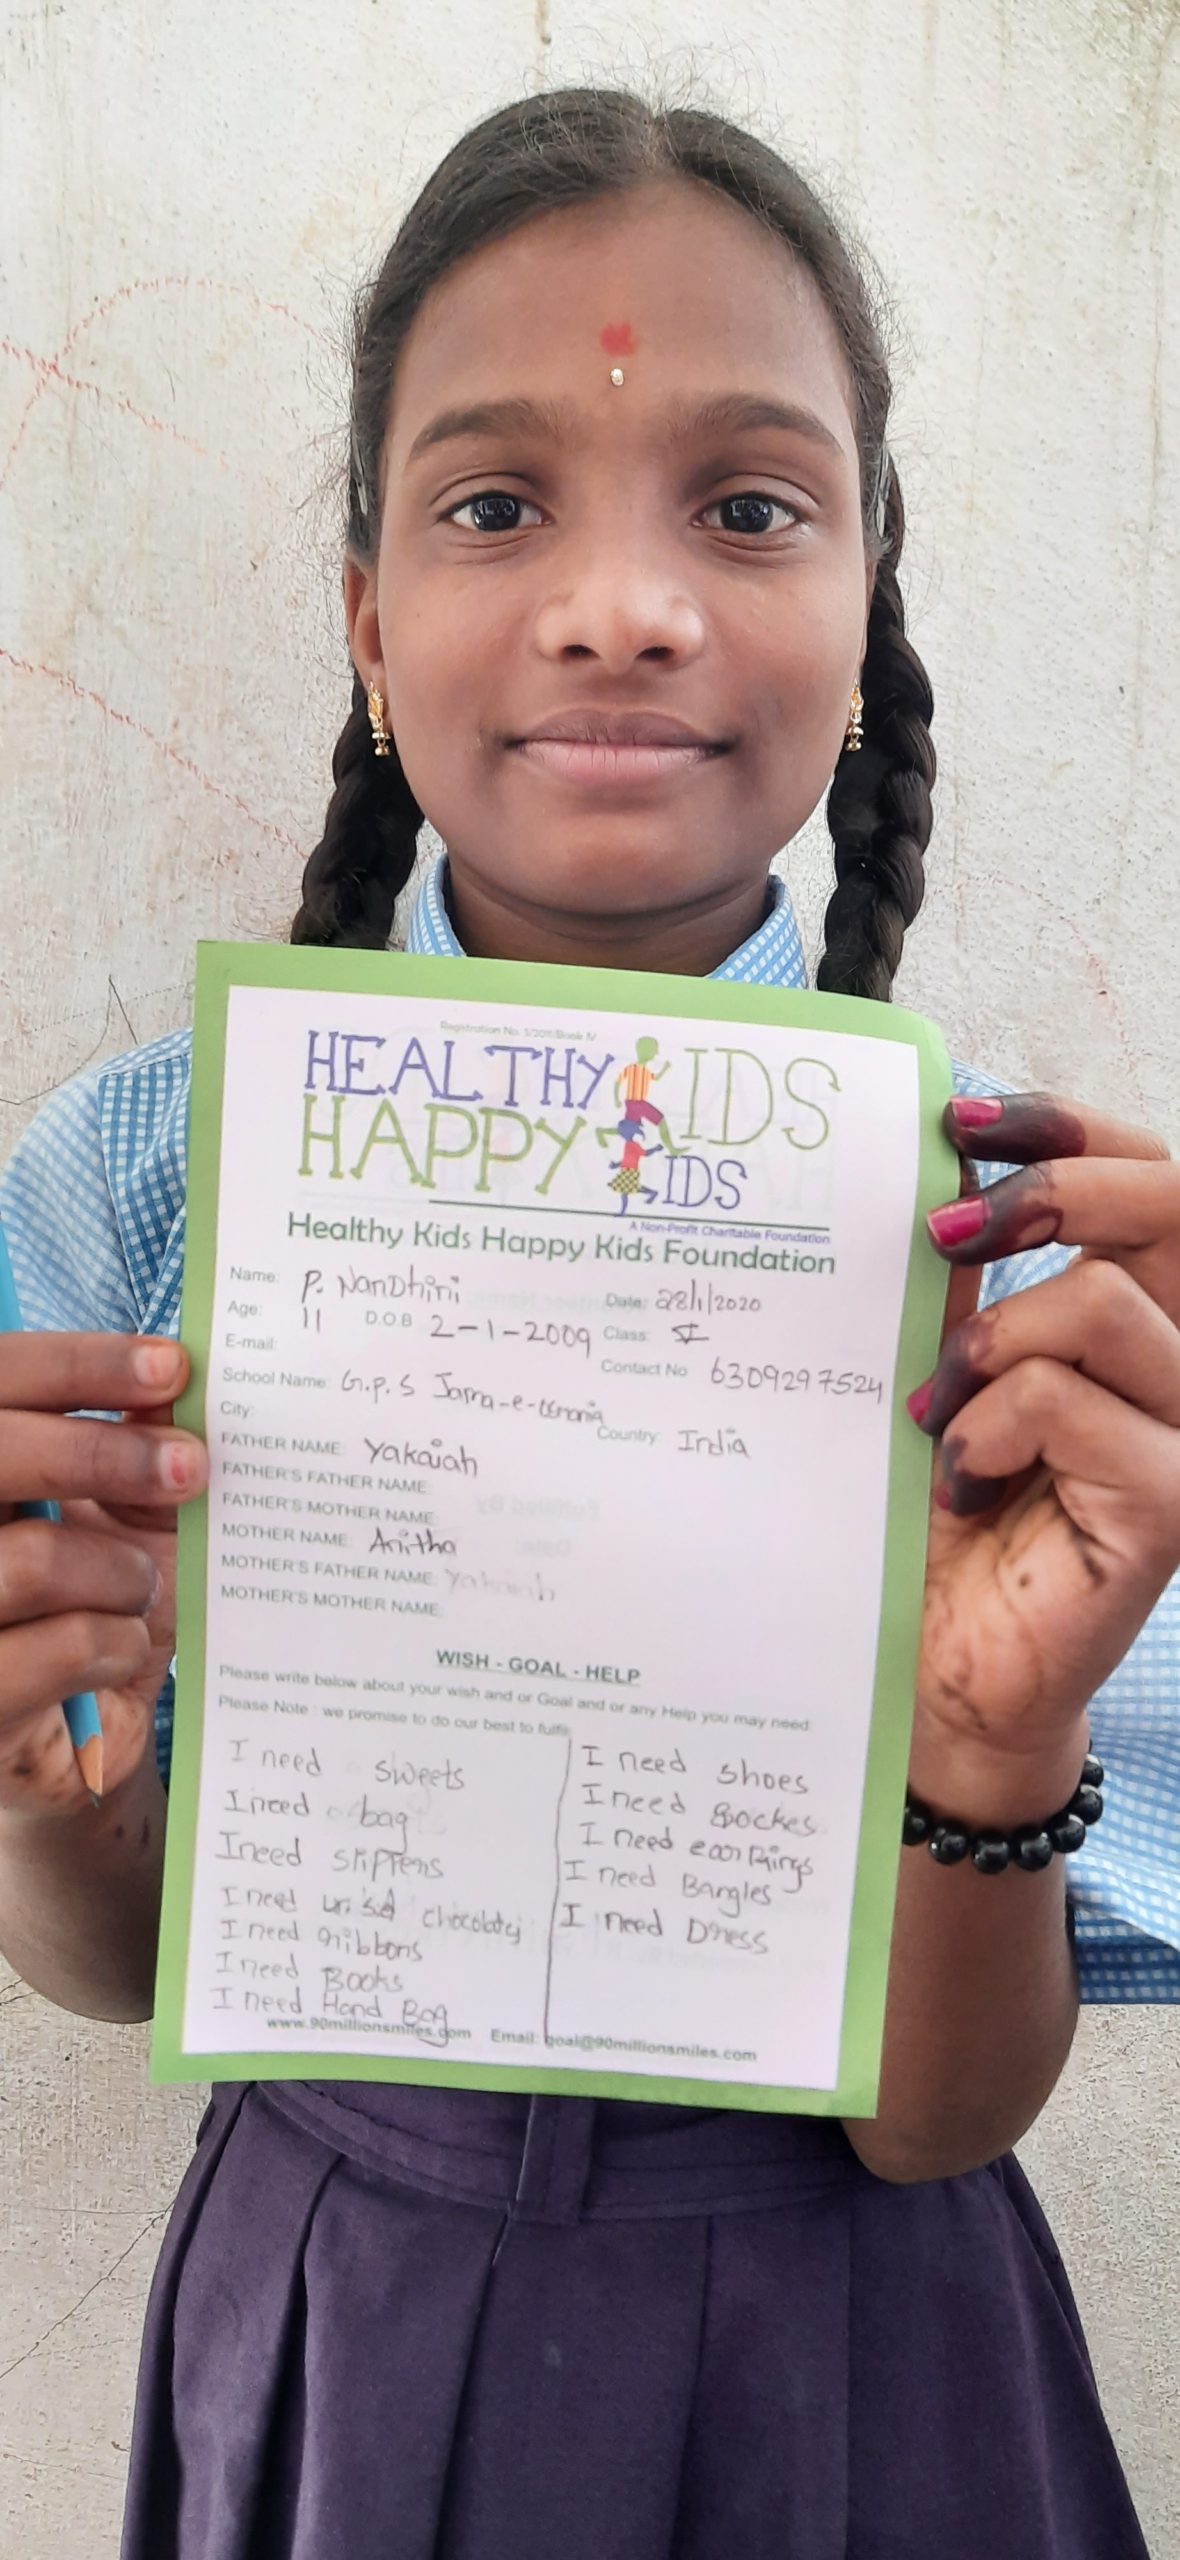 Registration No. 1/2011/Book IV
HEALTHY KIDS
HAPPY KIDS
A Non-Profit Charitable Foundation
Healthy Kids Happy Kids Foundation
Name: P. NanDhini Date: 28/1/2020
Age: 11 D.O.B 2-1-2009 Class: V
E-mail: Contact No 6309297524
School Name: G.P.S Jama-e-Osmania
City: Country: India
FATHER NAME: Yakaiah
FATHER'S FATHER NAME:
FATHER'S MOTHER NAME:
MOTHER NAME: Anitha
MOTHER'S FATHER NAME: Yakaiah
MOTHER'S MOTHER NAME:
WISH - GOAL - HELP
Please write below about your wish and or Goal and or any Help you may need.
Please Note : we promise to do our best to fulfil
I need sweets
I need bag
I need slippers
I need chocolatej
I need ribbons
I need Books
I need Hand Bag
I need shoes
I need Sockes
I need earRings
I need Bangles
I need Dress
www.90millionsmiles.com Email: goal@90millionsmiles.com